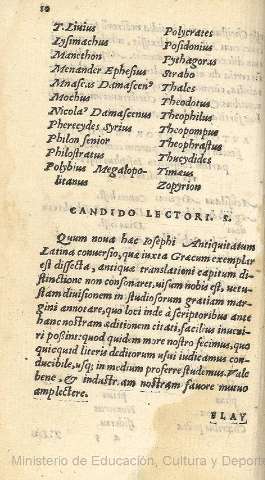 10
T. Liuius
Lysimachus
Manethon
Menander Ephesius
Mnaseas Damascenꝰ
Mochus
Nicolaꝰ Damascenus
Pherecydes Syrius
Philon senior
Philostratus
Polybius Megalopo-
litanus
Polycrates
Posidonius
Pythagoras
Strabo
Thales
Theodotus
Theophilus
Theopompus
Theophrastus
Thucydides
Timæus
Zopyrion
CANDIDO LECTORI. S.
Quum noua hæc Iosephi Antiquitatum
Latina conuersio, quæ iuxta Græcum exemplar
est dissecta, antiquæ translationi capitum di-
stinctione non consonaret, uisum nobis est, uetu-
stam diuisionem in studiosorum gratiam mar-
gini annotare, quo loci inde à scriptoribus ante
hanc nostram æditionem citati, facilius inueni-
ri possint: quod quidem more nostro fecimus, quo
quicquid literis deditorum usui iudicamus con-
ducibile, usq; in medium proferre studemus. Vale
bene, & industriam nostram fauore mutuo
amplectere.
FLAV
Ministerio de Educación, Cultura y Deporte